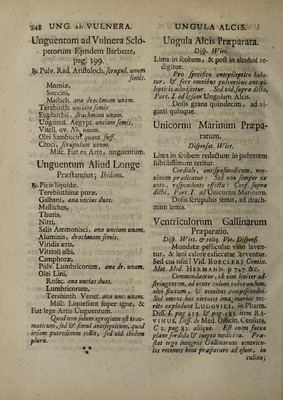 848 UNG. AD VULNERA.
Unguentum ad Vulnera Sclo-
petorum Ejusdem Barbette,
pag. 199.
℞. Pulv. Rad. Aristoloch. scrupul. unum
semis.
Momiæ,
Succini,
Mastich. ana drachmam unam.
Terebinth. unciam semis
Euphorbii, drachmam unam.
Unguent. Ægypt. unciam semis.
Vitell. ov. No. unum.
Olei Sambuci quant. suff.
Croci, scrupulum unum.
Misc. Fiat ex Arte, unguentum.
Unguentum Aliud Longe
Præstantius; Ibidem.
℞. Picis liquidæ,
Terebinthinæ puræ,
Galbani, ana uncias duas.
Mastiches,
Thuris,
Nitri,
Salis Ammoniaci, ana unciam unam.
Aluminis, drachmam semis.
Viridis æris,
Vitrioli albi,
Camphoræ,
Pulv. Lumbricorum, ana dr. unam.
Olei Lini,
Rosar. ana uncias duas.
Lumbricorum,
Terebinth. Venet. ana unc. unam.
Misc. Liquefiant super igne, &
Fiat lege Artis Unguentum.
Quod non solum egregium est trau-
maticum, sed & simul antisepticum, quod
etiam putredinem tollit, sed vid. ibidem
plura.
UNGULA ALCIS.
Ungula Alcis Præparata.
Disp. Wirt.
Lima in scobem, & post in alcohol re-
digitur.
Pro specifico antepileptico habe-
tur, & fere omnibus pulveribus antepi-
lepticis adscitur. Sed vid. supra dicta,
Part. I. ad ipsam Ungulam Alcis.
Dosis grana quindecim, ad vi-
ginti quinque.
Unicornu Marinum Præpa-
ratum.
Dispensat. Wirt.
Lima in scobem redactum in pulverem
subtilissimum teritur.
Cordiale, antispasmodicum, ner-
vinum prædicatur: Sed non semper ex
voto, respondente effectu: Conf. supra
dicta, Part. I. ad Unicornu Marinum.
Dosis scrupulus semis, ad drach-
mam semis.
Ventriculorum Gallinarum
Præparatio.
Disp. Wirt. & reliq. Vet. Dispens.
Mundatæ pelliculæ vino laven-
tur, & leni calore exsiccatæ serventur.
Sed cui usui? Vid. BOECLERI Contin.
Mat. Med. HERMANN. p 747. &c.
Commendantur, ob vim leniter ad-
stringentem, ad ventriculum roborandum,
alvi fluxum, & vomitum compescendos.
Sed omnis hæc virtus inea, inanis me-
rito explodunt LUDOVICI, in Pharm.
Diss. I. pag 413. & pag. 583. item RI-
VINUS, Diss. de Med. Officin. Censura,
C 2. pag. 82. aliique. Est enim futura
plane sordida & inepta medicina. Præ-
stat ergo integros Gallinarum ventricu-
los recentes bene præparare ad esum, in
culina;